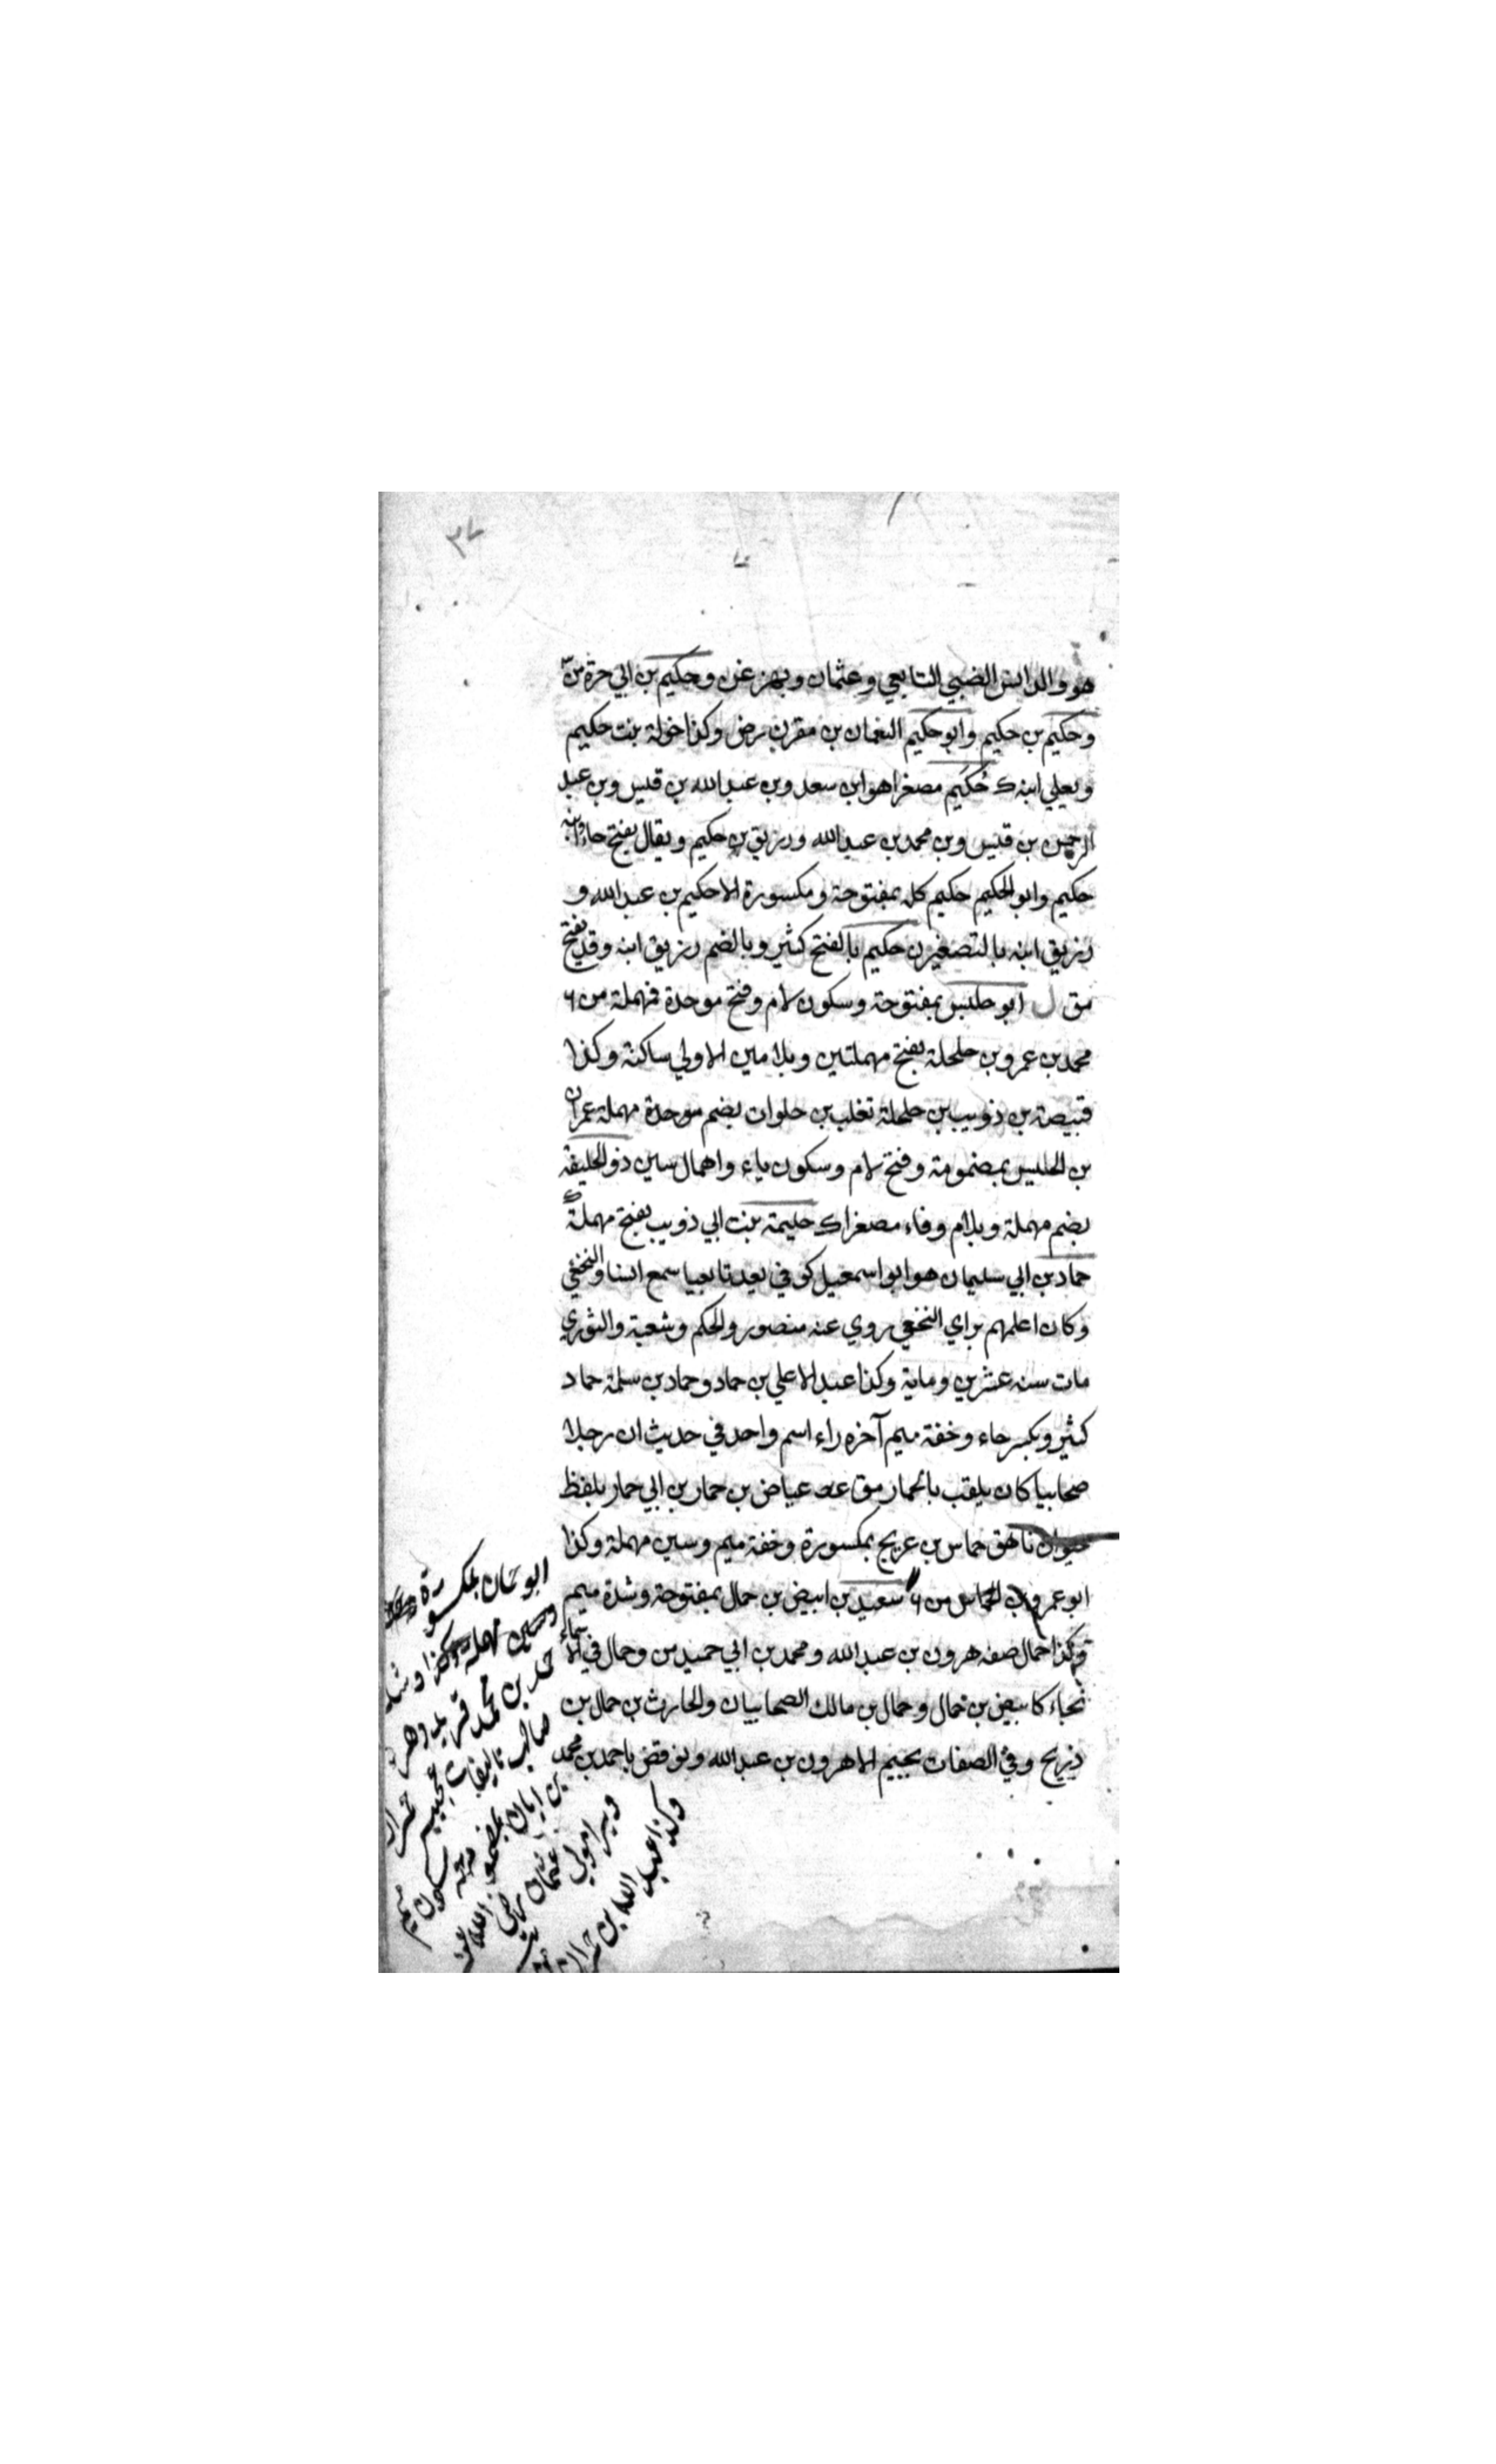 ٣٧
هو والد انس الضبي التابعي وعثمان وبهز غن وحكيم بن ابي حرة من
وحكيم بن حكيم وابو حكيم النعمان بن مقرن رض وكذا خولة بنت حكيم
ويعلي ابنه ك حُكَيم مصغرا هو ابن سعد وبن عبد الله بن قيس وبن عبد
الرحمن بن قيس وبن محمد بن عبد الله ورزيق بن حكيم ويقال بفتح حاء وابنه
حكيم وابو الحكيم حكيم كله بمفتوحة ومكسورة الا حكيم بن عبد الله و
رزيق ابنه بالتصغير ن حكيم بالفتح كثير وبالضم رزيق ابنه وقد يفتح
مق ل ابو حلبس بمفتوحة وسكون لام وفتح موحدة فمهملة من
محمد بن عمرو بن حلحلة بفتح مهملتين وبلامين الاولي ساكنة وكذا
قبيصة بن ذويب بن حلحلة تغلب بن حلوان بضم موحدة مهملة عمران
بن الحليس بمضمومة وفتح لام وسكون ياء واهمال سين ذو الحليفة
بضم مهملة وبلام وفاء مصغرا ك حليمة بنت ابي ذويب بفتح مهملة ك
حماد بن ابي سليمان هو ابو اسمعيل كوفي يعد تابعيا سمع انسا والنخعي
وكان اعلمهم براي النخعي روي عنه منصور والحكم وشعبة والثوري
مات سنه عشرين ومايه وكذا عبد الاعلي بن حماد وحماد بن سلمة حماد
كثير وبكسر حاء وخفة ميم آخره راء اسم واحد في حديث ان رجلا
صحابيا كان يلقب بالحمار مق عياض بن حمار بن ابي حمار بلفظ
حيوان ناهق حماس بن عريج بمكسورة وخفة ميم وسين مهملة وكذا
ابو عمرو بن الحماس من سعيد بن ابيض بن حمال بمفتوحة وشدة ميم
وكذا حمال صفه هرون بن عبد الله ومحمد بن ابي حميد من وحمال في الاسماء
بحاء كابيض بن حمال وحمال بن مالك الصحابيان والحارث بن حمال بن
ذريح وفي الصفات بجيم الا هرون بن عبد الله ونوقض باحمد بن محمد
ابو بمكسورة
وسين مهملة وكذا
حمد بن محمد
صاحب تاليفات
بن ابان بمضمومة وسكون ميم
عثمان رضي الله
وكذا عبد الله بن